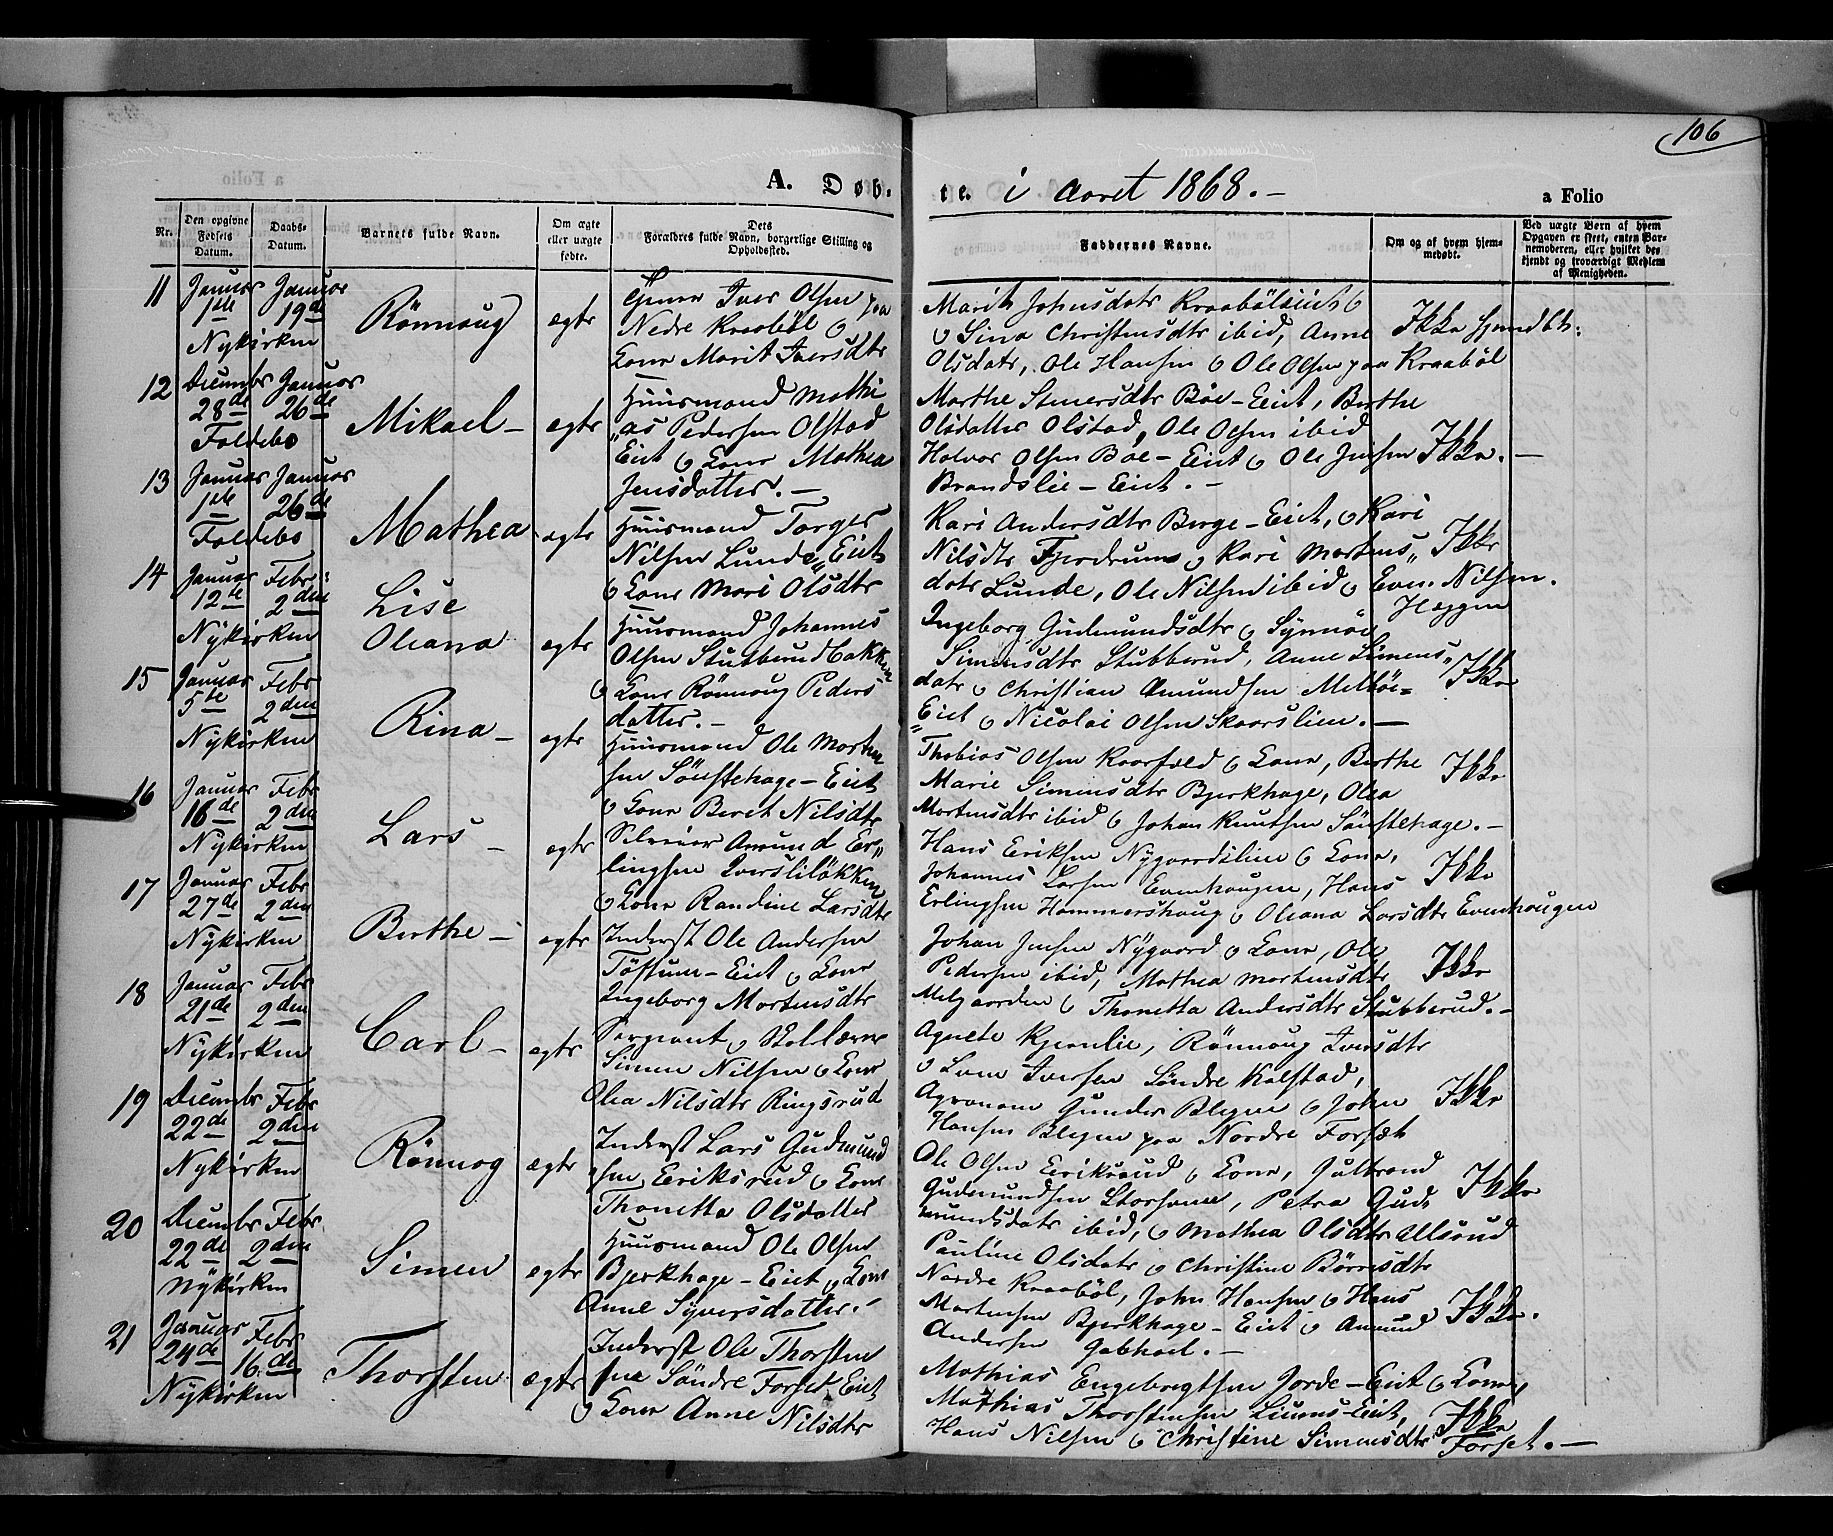 106
A. Døb-
te. i Aaret 1868.-
a Folio
Nr.
Den opgivne Fødsels Datum.
Daabs-Datum.
Barnets fulde Navn.
Om ægte eller uægte fødte.
Dets Forældres fulde Navn, borgerlige Stilling og Opholdssted.
Faddernes Navne.
Om og af hvem hjemmedøbt.
Ved uægte Børn af hvem Opgaven er skeet, enten Barnemoderen, eller hvilket bekjendt og troværdigt Medlem af Menigheden.
11 Januar 1ste Januar 19de
Nykirken
Rönnoug
ægte
Iver Olsen paa
Nedre Kraaböl og
Kone Marit Iversdtr
Marit Johnsdatr Kraaböleiet
og Sina Christensdtr ibid, Anne
Olsdatr, Ole Hansen og Ole Olsen paa Kraaböl
Ikke hjemdbt:
12 Decembr 28de Januar 26de
Foldebo
Mikael-
ægte
Huusmand Mathi
"as Pedersen Olstad
Eiet og Kone Mathea
Jensdatter.-
Marthe Simersdtr Böe-Eiet, Berthe
Olsdatter Olstad, Ole Olsen ibid
Halvor Olsen Böe-Eiet og Ole Jensen
Brandslie-Eiet.-
Ikke.-
13 Januar 1ste Januar 26de
Foldebo
Mathea
ægte
Huusmand Torger
Nilsen Lunde"Eiet
og Kone Mari Olsdtr
Kari Andersdtr Berge-Eiet, og Kari
Nilsdtr Fjerdrum og Kari Mortens"
datr Lunde, Ole Nilsen ibid og Even Nilsen
Heggen
Ikke
14 Januar 12te Febr: 2den
Nykirken
Lise
Oleana
ægte
Huusmand Johannes
Olsen Stubberudbakken
og Kone Rönnoug Peders
datter.-
Ingeborg Gudmundsdtr og Synnöe
Simensdtr Stubberud, Anne Simens"
datr og Christian Amundsen Melböe=
"Eiet og Nicolai Olsen Skaarslien.-
Ikke
15 Januar 5te Febr 2den
Nykirken
Rina-
ægte
Huusmand Ole Morten
sen Sönstehage-Eiet
og Kone Beret Nilsdtr
Thobias Olsen Kaarfald og Kone, Berthe
Marie Simensdtr Bjerkhage, Olea
Mortensdtr ibid og Johan Knutsen Sönstehage.-
Ikke
16 Januar 16de Febr 2den
Nykirken
Lars-
ægte
Selveier Amund Er"
lingsen Qversliløkken
og Kone Randine Larsdtr
Hans Eriksen Nygaardslien og Kone,
Johannes Larsen Evenhaugen, Hans
Erlingsen Hammershaug og Oleana Larsdtr Evenhaugen
Ikke
17 Januar 27de Febr 2den
Nykirken
Berthe-
ægte
Inderst Ole Andersen
Töftum-Eiet og Kone
Ingeborg Mortensdtr
Johan Jensen Nygaard og Kone, Ole
Pedersen ibid, Mathea Mortensdtr
Melgaarden og Thonetta Andersdtr Stubberud.-
Ikke
18 Januar 21de Febr 2den
Nykirken
Carl-
ægte
Sergeant og Skolelærer
Simen Nilsen og Kone
Olea Nilsdtr Ringsrud
Agnete Kjeanlie, Rönnoug Iversdtr
og Sven Iversen Söndre Kalstad,
Agronom Gunder Blegen og John
Hansen Blegen paa Nordre Forset
Ikke
19 Decembr 22de Febr 2den
Nykirken
Rönnog
ægte
Inderst Lars Gudmund
"sen Eeriksrud og Kone
Thonetta Olsdatter
Ole Olsen Eeriksrud og Kone, Gulbrand
Gudmundsen Storhove, Petra Gud"
mundsdatr ibid, og Mathea Olsdtr Ullsrud
Ikke
20 Decembr 22de Febr 2den
Nykirken
Simen
ægte
Huusmand Ole Olsen
Bjerkhage-Eiet og Kone
Anne Syversdatter.-
Pauline Olsdatr og Christine Börresdtr
Nordre Kraaböl, John Hansen og Hans
Mortensen Bjerkhage-Eiet og Amund
Andersen .-
Ikke.
21 Januar 24de Febr 16de
Nykirken
Thorsten
ægte
Inderst Ole Thorsten
sen Söndre Forset Eiet
og Kone Anne Nilsdtr
Mathias Engebregtsen Jorde-Eiet og Kone,
Mathias Thorstensen Liens-Eiet,
Hans Nilsen og Christine Simensdtr Forset.-
Ikke